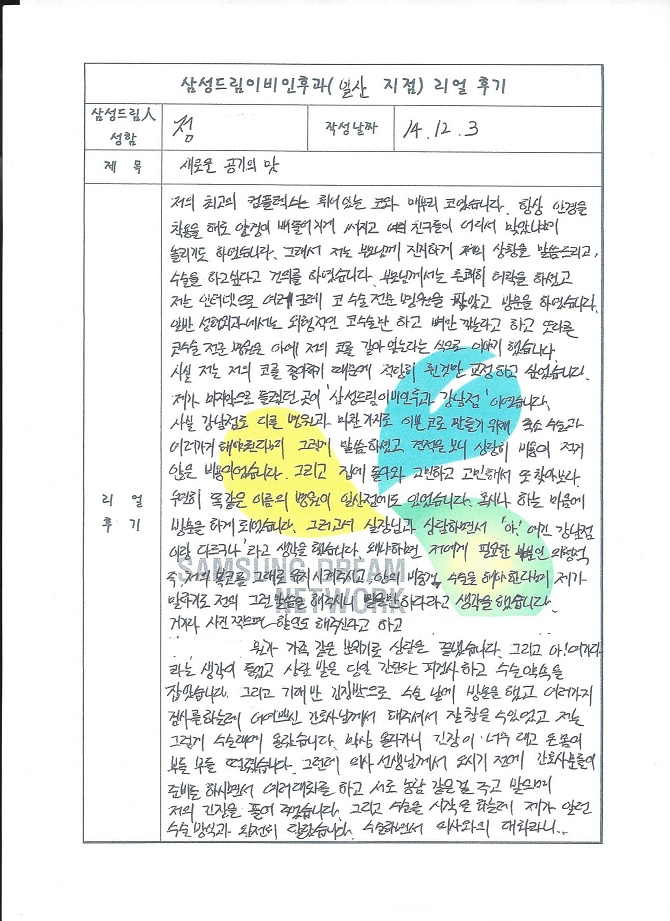 삼성드림이비인후과(일산 지점) 리얼 후기
삼성드림人 성함 정 작성날짜 14. 12. 3
제 목 새로운 공기의 맛
리 얼 후 기
저의 최고의 컴플렉스는 휘어있는 코와 매부리 코였습니다. 항상 안경을
착용을 해도 안경이 삐뚤어지게 써지고 여러 친구들이 어디서 맞았냐며
놀리기도 하였습니다. 그래서 저는 부모님께 진지하게 저의 상황을 말씀드리고,
수술을 하고싶다고 건의를 하였습니다. 부모님께서는 흔쾌히 허락을 하셨고
저는 인터넷으로 여러 코 수술 전문 병원을 찾았고 방문을 하였습니다.
일반 성형외과에서는 외형적인 코수술만 하고 뼈만 깎는라고 하고 또다른
코수술 전문 병원은 아예 저의 코를 갈아 엎는다는 식으로 이야기 했습니다.
사실 저는 저의 코를 좋아하기 때문에 적당히 휜것만 교정하고 싶었습니다.
제가 마지막으로 들렸던 곳이 '삼성드림이비인후과 강남점' 이었습니다.
사실 강남점도 다른 병원과 마찬가지로 이쁜 코로 만들기 위해 축소 수술과
여러가지 해야된다며 그렇게 말씀하셨고 견적을 보니 상당히 비용이 적지
않은 비용이었습니다. 그리고 집에 돌아와 고민하고 고민해서 또 찾아보다
우연히 똑같은 이름의 병원이 일산점에도 있었습니다. 혹시나 하는 마음에
방문을 하게 되었습니다. 그러고서 실장님과 상담하면서 '아! 여긴 강남점
이랑 다르구나' 라고 생각을 했습니다. 왜냐하면 저에게 필요한 부분인
즉, 저의 복코를 그대로 유지 시켜주시고, 안의 비중격 수술을 해야 한다며 제가
말하기도 전에 그런 말씀을 해주시니 믿을만 하다라고 생각을 했습니다.
거기다 사진 찍으면 할인도 해주신다고 하고
뭔가 가족 같은 분위기로 상담을 끝냈습니다. 그리고 아! 여기다
라는 생각이 들었고 상담 받은 당일 간단한 피검사하고 수술약속을
잡았습니다. 그리고 기대반 긴장반으로 수술 날에 방문을 했고 여러가지
검사를 하는데 어여쁘신 간호사님께서 해주셔서 잘 참을 수 있었고 저는
그렇게 수술대에 올랐습니다. 막상 올라가니 긴장이 너무 되고 온몸이
부들 부들 떨렸습니다. 그런데 의사 선생님께서 오시기 전에 간호사분들이
준비를 하시면서 여러대화를 하고 서로 농담 같은걸 주고 받으며
저의 긴장을 풀어 주었습니다. 그리고 수술을 시작을 하는데 제가 알던
수술 방식과 완전히 달랐습니다. 수술하면서 의사와의 대화라니...
SAMSUNG DREAM
NETWORK